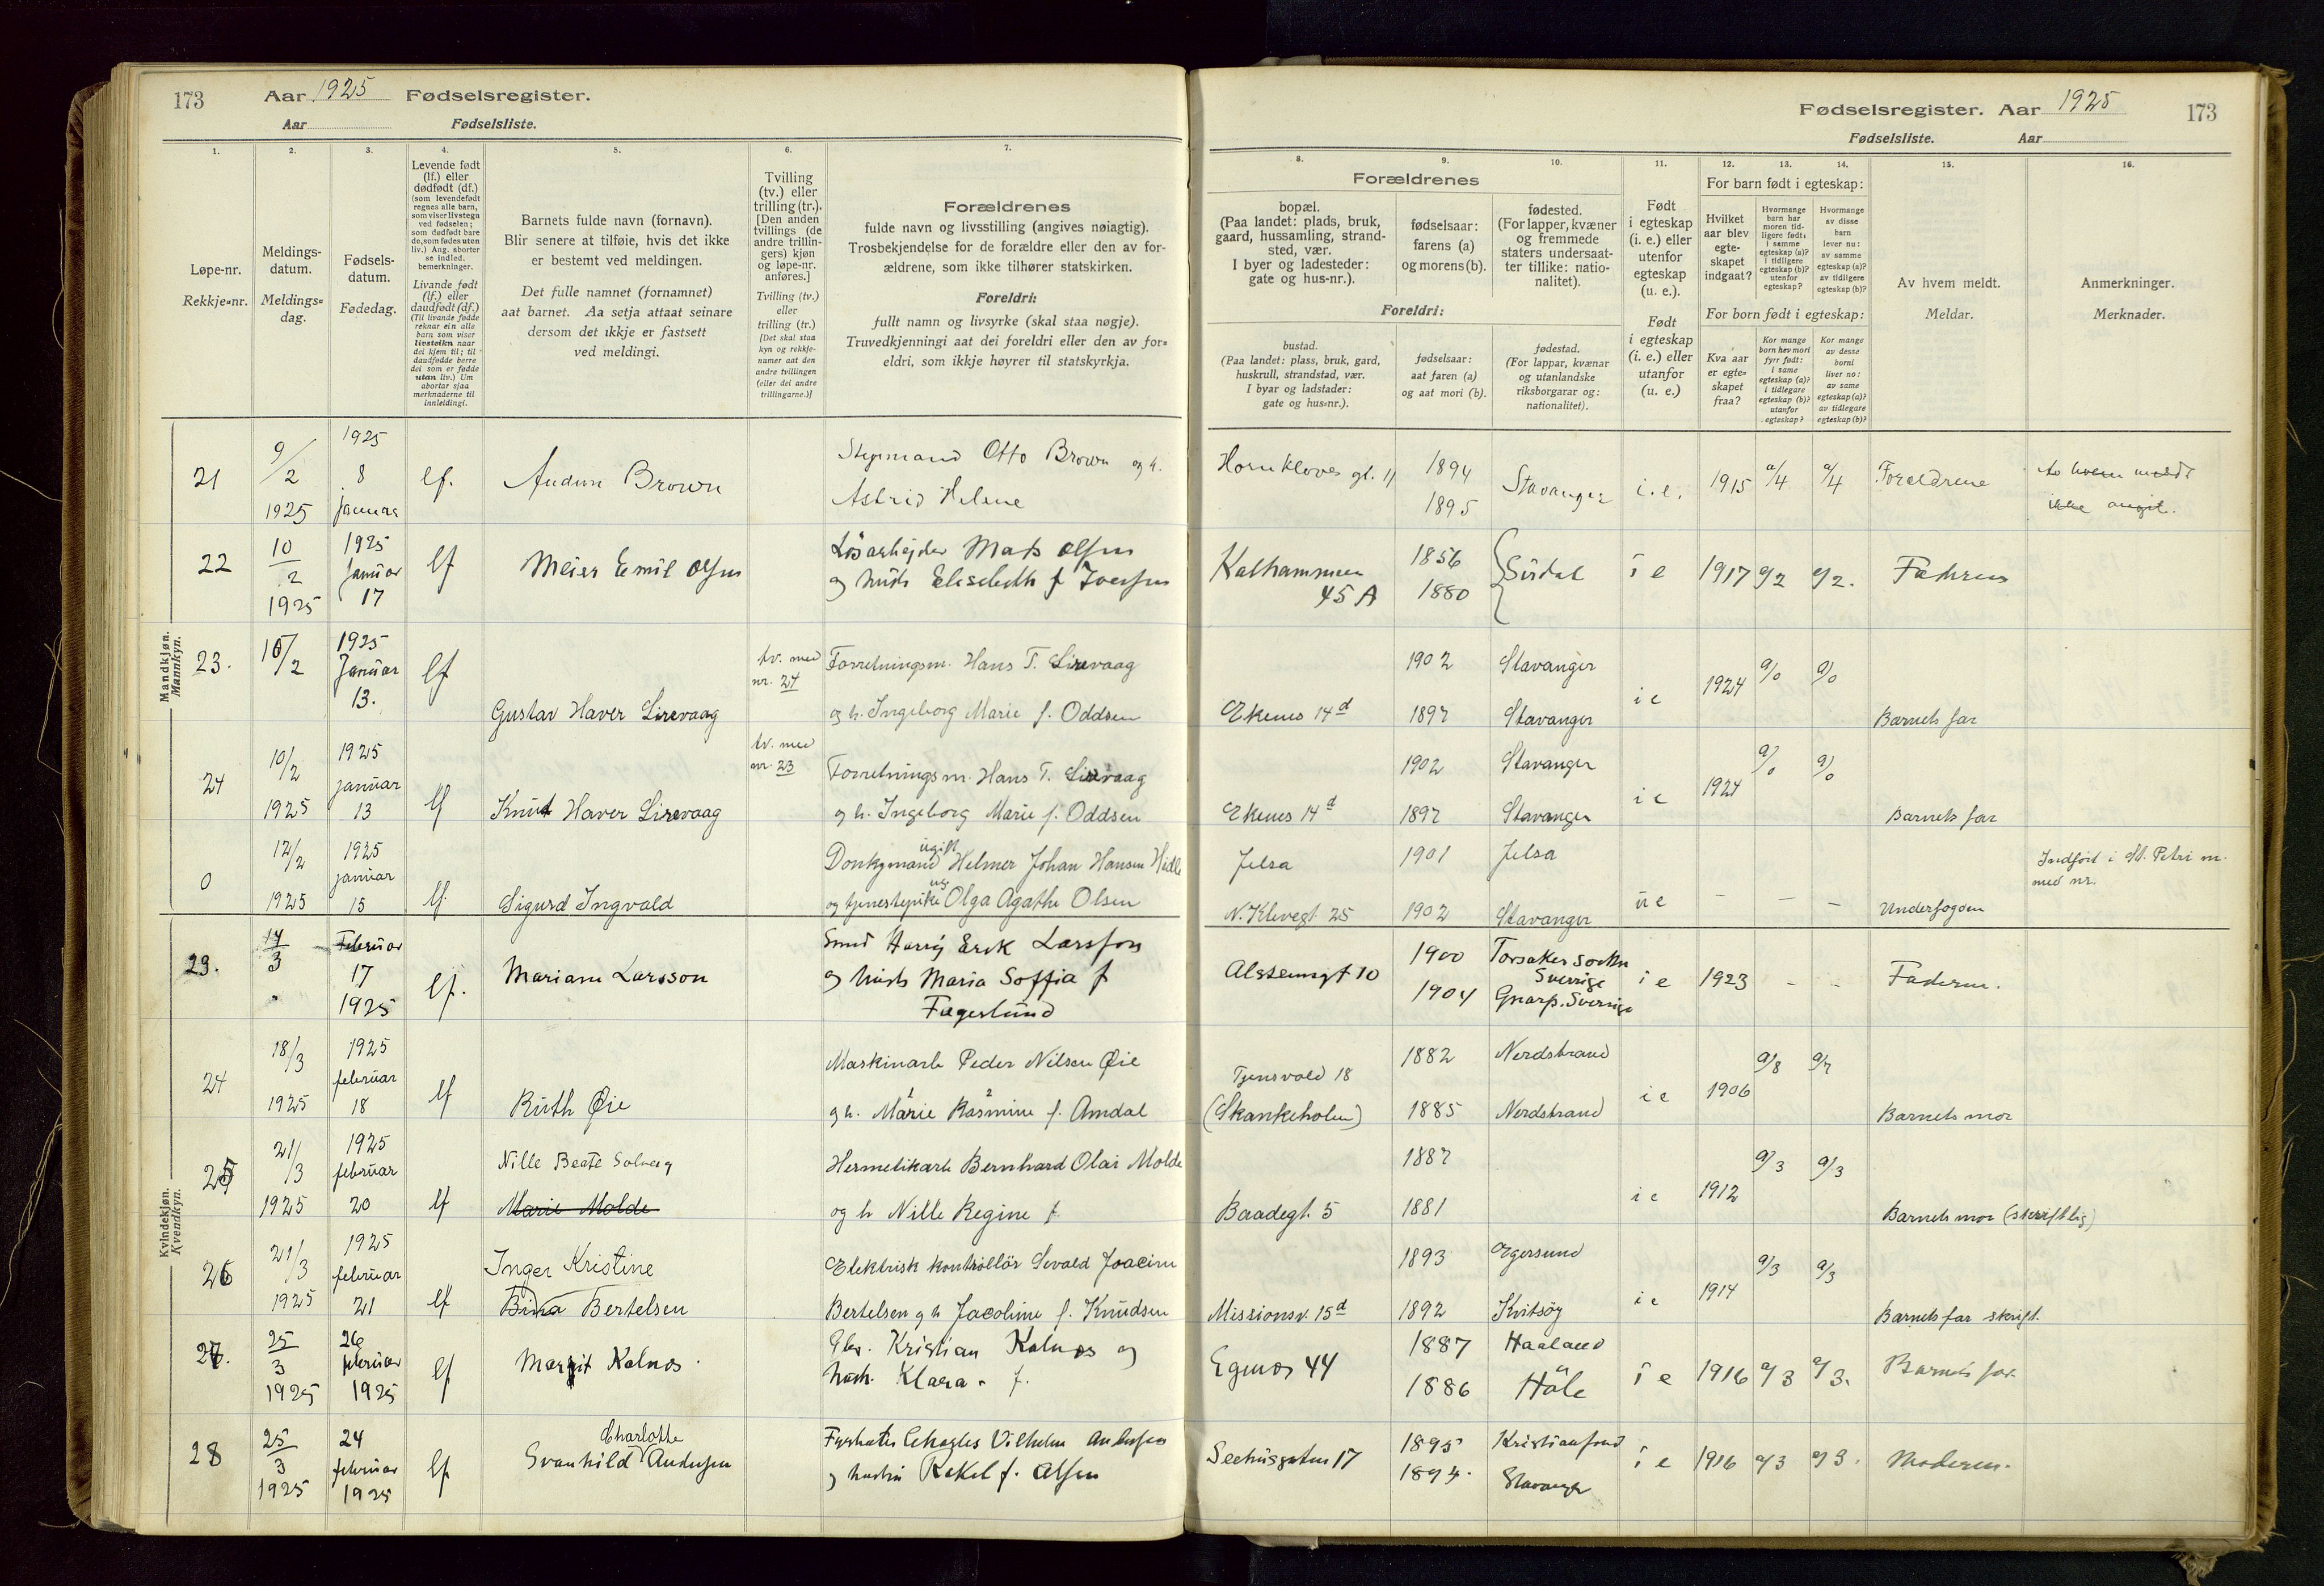 173 Aar 1925 Fødselsregister.
Aar Fødselsliste.
1. 2. 3. 4. 5. 6. 7.
Løpe-nr.
Rekkje-nr.
Meldings-
datum.
Meldings-
dag.
Fødsels-
datum.
Fødedag.
Levende født
(lf.) eller
dødfødt (df.)
(som levendefødt
regnes alle barn,
som viser livstegn
ved fødselen;
som dødfødt bare
de, som fødes uten
liv.) Ang. aborter
se indled.
bemerkninger.
Livande født
(lf.) eller
daudfødt (df.)
(Til livande fødde
reknar ein alle
barn som viser
livsteikn naar
dei kjem til; til
daudfødde berre
dei som er fødde
utan liv.) Um
abortar sjaa
merknaderne til
innleidingi.
Barnets fulde navn (fornavn).
Blir senere at tilføie, hvis det ikke
er bestemt ved meldingen.
Det fulle namnet (fornamnet)
aat barnet. Aa setja attaat seinare
dersom det ikkje er fastsett
ved meldingi.
Tvilling
(tv.) eller
trilling (tr.).
[Den anden
tvillings (de
andre trillin-
gers) kjøn
og løpe-nr.
anføres.]
Tvilling (tv.)
eller
trilling (tr.)
[Det skal staa
kyn og rekkje-
numer aat den
andre tvillingen
(eller dei andre
trillingarne.)]
Forældrenes
fulde navn og livsstilling (angives nøiagtig).
Trosbekjendelse for de forældre eller den av for-
ældrene, som ikke tilhører statskirken.
Foreldri:
fullt namn og livsyrke (skal staa nøgje).
Truvedkjenningi aat dei foreldri eller den av for-
eldri, som ikkje høyrer til statskyrkja.
Mandkjøn.
Mannkyn.
21 9/2 1925 1925 8 januar lf. Audun Brown Otto Brown og h.
Astrid Helene
22 10/2 1925 1925 Januar 17 lf Meier Emil Olsen Løsarbejder Mats Olsen
og hustr Elisabeth f Iversen
23. 10/2 1925 Januar 13. lf Gustav Haver Sirevaag tv. med nr. 24 Forretningsm. Hans T. Sirevaag
og h. Ingeborg Marie f. Oddsen
24 10/2 1925 1925 januar 13 lf Knut Haver Sirevaag tv. med nr. 23 Forretningsm. Hans T. Sirevaag
og h. Ingeborg Marie f. Oddsen
0 12/2 1925 1925 januar 15 lf. Sigurd Ingvald Donkymand ugift Helmer Johan Hansen
og tjenestepike ug. Olga Agathe Olsen
Kvindekjøn.
Kvendkyn.
23. 14/3 Februar 17 1925 lf. Mariann Larsson Harry Erik Larsson
og hustr Maria Soffia f
Fagerlund
24 18/3 1925 1925 februar 18 lf Ruth Øie Maskinarb Peder Nilsen Øie
og h. Marie Rasmine f. Amdal
25 21/3 1925 1925 februar 20 lf Nille Beate Solveig
Marie Molde
Hermetikarb Bernhard Olai Molde
og h Nille Regine f.
26 21/3 1925 1925 februar 21 lf Inger Kristine
Bina Bertelsen
Elektrisk kontrollør Sevald Joacim
Bertelsen og h Jacoline f. Knudsen
27. 25/3 1925 26 februar 1925 lf Margit Kalnes Kristian Kalnes og
hustr. Klara f.
28 25/3 1925 24 februar 1925 lf Charlotte
Svanhild Andersen
Fyrbøter Charles Vilhelm Andersen
og hustru Rakel f. Olsen
Fødselsregister. Aar 1925 173
Fødselsliste. Aar
8. 9. 10. 11. 12. 13. 14. 15. 16.
Forældrenes
bopæl.
(Paa landet: plads, bruk,
gaard, hussamling, strand-
sted, vær.
I byer og ladesteder:
gate og hus-nr.).
fødselsaar:
farens (a)
og morens (b).
fødested.
(For lapper, kvæner
og fremmede
staters undersaat-
ter tillike: natio-
nalitet).
Foreldri:
bustad.
(Paa landet: plass, bruk, gard,
huskrull, strandstad, vær.
I byar og ladstader:
gate og hus-nr.).
fødselsaar:
aat faren (a)
og aat mori (b).
fødestad.
(For lappar, kvænar
og utanlandske
riksborgarar og:
nationalitet).
Født
i egteskap
(i. e.) eller
utenfor
egteskap
(u. e.).
Født
i egteskap
(i. e.) eller
utanfor
(u. e.)
For barn født i egteskap:
Hvilket
aar blev
egte-
skapet
indgaat?
Hvormange
barn har
moren tid-
ligere født:
i samme
egteskap (a)?
i tidligere
egteskap (b)?
utenfor
egteskap?
Hvormange
av disse
barn
lever nu:
av samme
egteskap (a)?
av tidligere
egteskap (b)?
For born født i egteskap:
Kva aar
er egte-
skapet
fraa?
Kor mange
born hev mori
fyrr født:
i same
egteskap (a)?
i tidlegare
egteskap (b)?
utanfor
egteskap?
Kor mange
av desse
borni
liver no:
av same
egteskap (a)?
av tidlegare
egteskap (b)?
Av hvem meldt.
Meldar.
Anmerkninger.
Merknader.
Hornkloves gt. 11 1894 1895 Stavanger i. e. 1915 a/4 a/4 Forældrene Av hvem meldt
ikke angit.
Kalhammeren 45 A 1856 1880 Sirdal i e 1917 a/2 a/2. Faderen
Ekenes 14d 1902 1897 Stavanger Stavanger i e 1924 a/0 a/0 Barnets far
Ekenes 14d 1902 1897 Stavanger Stavanger i e 1924 a/0 a/0 Barnets far
Jelsa 1901 Jelsa Indført i St. Petri m.
med nr.
N. Klevegt. 25 1902 Stavanger u e – – – Underfogden
Alsteinsgt 10 1900 Torsåker Socken
Sverige
1904 Gnarp. Sverige i e 1923 - - Faderen.
Tjensvold 18
(Skankeholen) 1882 Nerdstrand 1885 Nerdstrand i e 1906 a/8 a/7 Barnets mor
Baadegt. 5 1887 1881 i e 1912 a/3 a/3 Barnets mor (skriftlig)
Missionsv. 15d 1893 Egersund 1892 Kvitsøy i e 1914 a/3 a/3 Barnets far skriftl.
Egenes 44 1887 Haaland 1886 Håle i e 1916 a/3 a/3. Barnets far
Seehusgaten 17 1895 Kristiansand 1894. Stavanger i e 1916 a/3 a/3. Moderen.